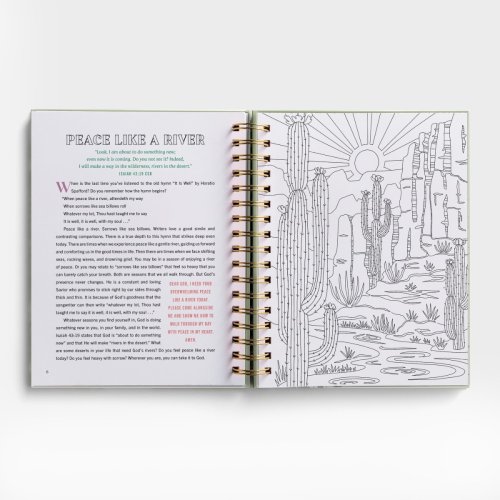 PEACE LIKE A RIVER
"Look, I am about to do something new;
even now it is coming. Do you not see it? Indeed,
I will make a way in the wilderness, rivers in the desert."
ISAIAH 43:19 CSB
When is the last time you've listened to the old hymn "It Is Well" by Horatio
Spafford? Do you remember how the hymn begins?
"When peace like a river, attendeth my way
When sorrows like sea billows roll
Whatever my lot, Thou hast taught me to say
It is well, it is well, with my soul . . ."
Peace like a river. Sorrows like sea billows. Writers love a good simile and
contrasting comparisons. There is a true depth to this hymn that strikes deep even
today. There are times when we experience peace like a gentle river, guiding us forward
and comforting us in the good times of life. Then there are times when we face shifting
seas, rocking waves, and drowning grief. You may be in a season of enjoying a river
of peace. Or you may relate to "sorrows like sea billows" that feel so heavy that you
can barely catch your breath. Both are seasons that we all walk through. But God's
presence never changes. He is a constant and loving
Savior who promises to stick right by our sides through
thick and thin. It is because of God's goodness that the
songwriter can then write "whatever my lot, Thou hast
taught me to say it is well, it is well, with my soul . . ."
DEAR GOD, I NEED YOUR
OVERWHELMING PEACE
LIKE A RIVER TODAY.
PLEASE COME ALONGSIDE
ME AND SHOW ME HOW TO
WALK THROUGH MY DAY
WITH PEACE IN MY HEART.
AMEN.
Whatever season you find yourself in, God is doing
something new in you, in your family, and in the world.
Isaiah 43:19 states that God is "about to do something
new" and that He will make "rivers in the desert." What
are some deserts in your life that need God's rivers? Do you feel peace like a river
today? Do you feel heavy with sorrow? Wherever you are, you can take it to God.